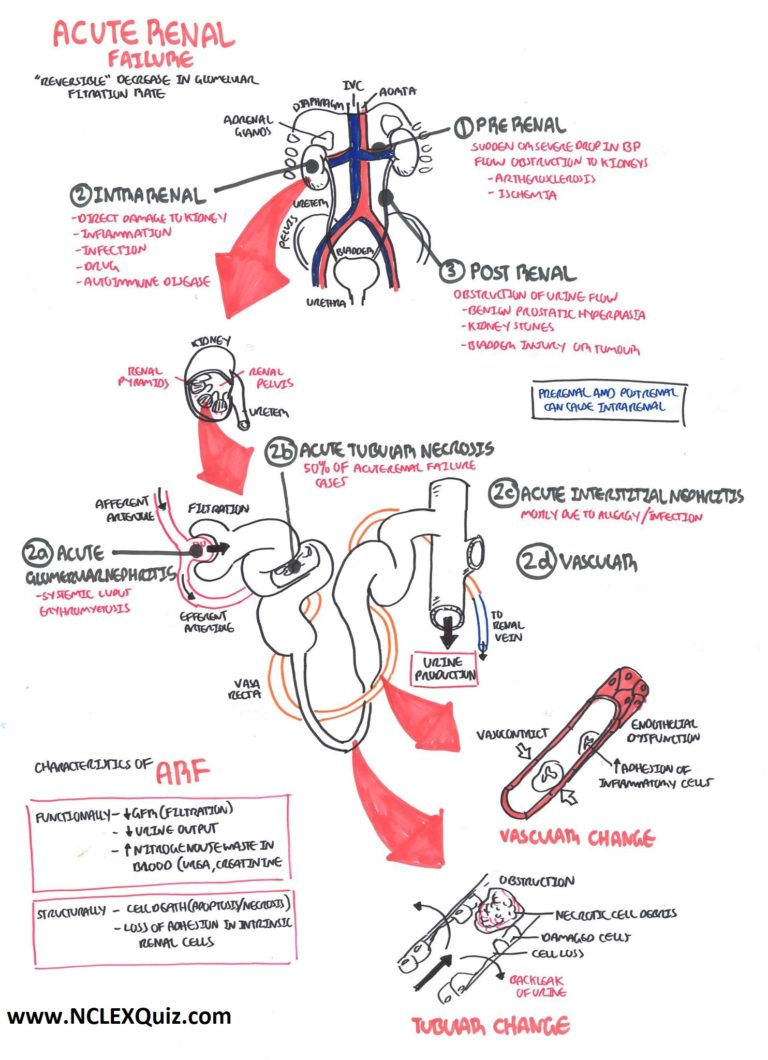 ACUTE RENAL
FAILURE
"REVERSIBLE" DECREASE IN GLOMELULAR
FILTRATION RATE
IVC
AORTA
DIAPHRAGM
ADRENAL
GLANDS
URETER
PELVIS
BLADDER
URETHRA
1 PRERENAL
SUDDEN OR SEVERE DROP IN BP
FLOW OBSTRUCTION TO KIDNEYS
- ARTHEROXLEROSIS
- ISCHEMIA
2 INTRARENAL
- DIRECT DAMAGE TO KIDNEY
- INFLAMMATION
- INFECTION
- DRUG
- AUTOIMMUNE DISEASE
3 POST RENAL
OBSTRUCTION OF URINE FLOW
- BENIGN PROSTATIC HYPERPLASIA
- KIDNEY STONES
- BLADDER INJURY OR TUMOUR
KIDNEY
RENAL
PYRAMIDS
RENAL
PELVIS
URETER
PRERENAL AND POSTRENAL
CAN CAUSE INTRARENAL
2b ACUTE TUBULAR NECROSIS
50% OF ACUTE RENAL FAILURE
CASES
2c ACUTE INTERSTITIAL NEPHRITIS
MOSTLY DUE TO ALLERGY/INFECTION
2d VASCULAR
AFFERENT
ARTERIOLE
FILTRATION
2a ACUTE
GLOMERULARNEPHRITIS
- SYSTEMIC LUPUT
ERYHROMYETOSIS
EFFERENT
ARTERIOLE
VASA
RECTA
TO
RENAL
VEIN
URINE
PRODUCTION
VASOCONTRICT
ENDOTHELIAL
DYSFUNCTION
↑ ADHESION OF
INFLAMMATORY CELLS
VASCULAR CHANGE
CHARACTERISTICS OF ARF
FUNCTIONALLY - ↓ GFR (FILTRATION)
- ↓ URINE OUTPUT
- ↑ NITROGENOUSE WASTE IN
BLOOD (UREA, CREATININE
STRUCTURALLY - CELL DEATH (APOPTOSIS/NECROSIS)
- LOSS OF ADHESION IN INTRINSIC
RENAL CELLS
OBSTRUCTION
NECROTIC CELL DEBRIS
DAMAGED CELLS
CELL LOSS
BACKLEAK
OF URINE
TUBULAR CHANGE
www.NCLEXQuiz.com